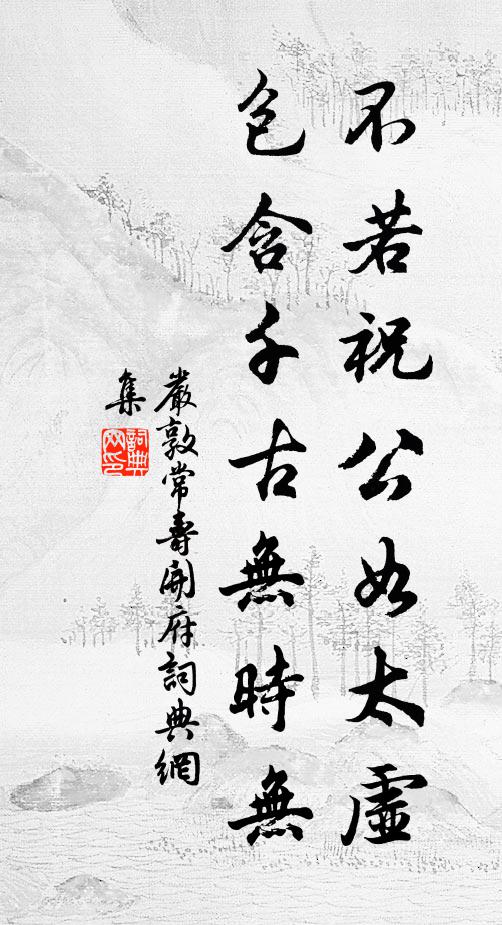 不若祝公如太虛
包含千古無時無
嚴敦常壽開府詞典網
集
詞典
網印